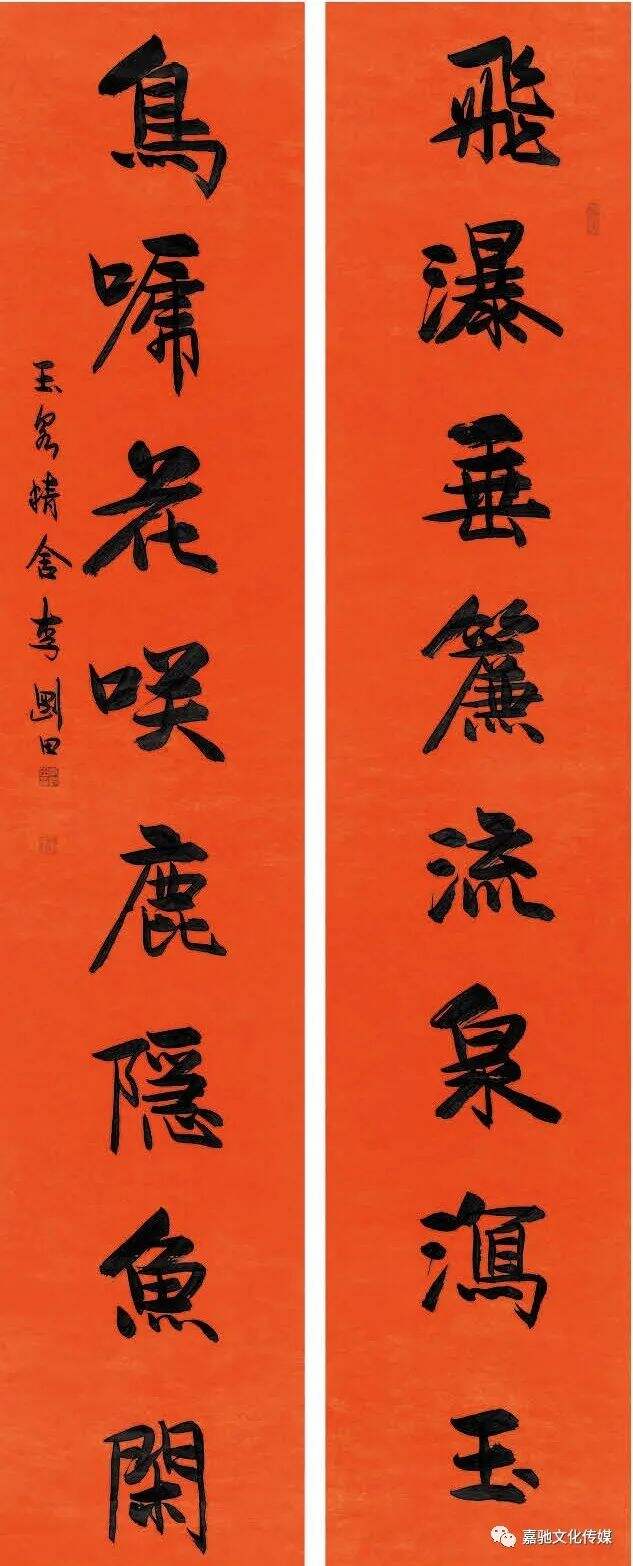 飛瀑垂簾流泉瀉玉
鳥嘯花咲鹿隐魚閑
精舍李剛田
嘉驰文化传媒